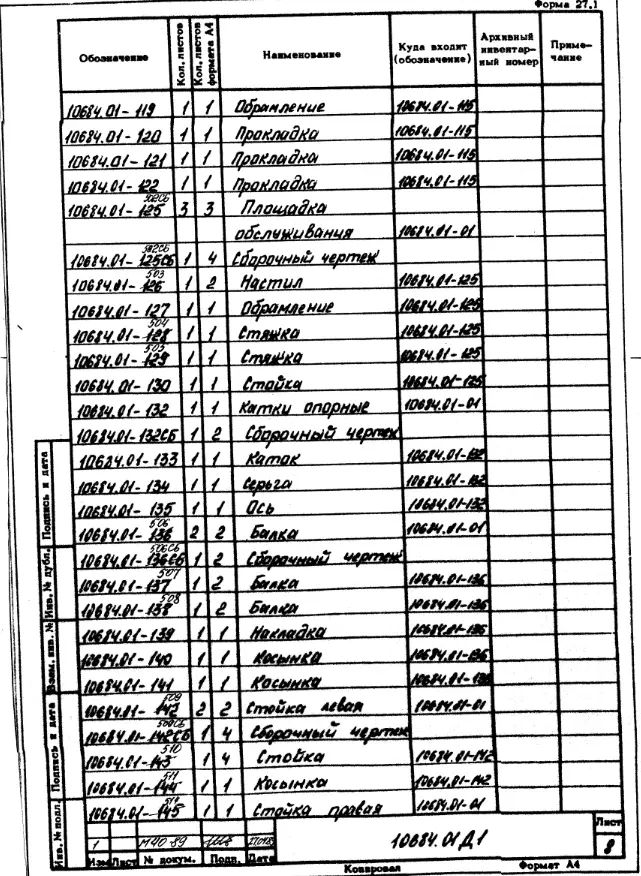 Форма 27.1
Обозначение Кол. листов Кол. листов формата А4 Наименование Куда входит (обозначение) Архивный инвентарный номер Примечание
10684.01-119 1 1 Обрамление 10684.01-115
10684.01-120 1 1 Прокладка 10684.01-115
10684.01-121 1 1 Прокладка 10684.01-115
10684.01-122 1 1 Прокладка 10684.01-115
502СБ
10684.01-125 3 3 Площадка
обслуживания 10684.01-01
502СБ
10684.01-125СБ 1 4 Сборочный чертеж
503
10684.01-126 1 2 Настил 10684.01-125
10684.01-127 1 1 Обрамление 10684.01-125
504
10684.01-128 1 1 Стяжка 10684.01-125
505
10684.01-129 1 1 Стяжка 10684.01-125
10684.01-130 1 1 Стойка 10684.01-125
10684.01-132 1 1 Катки опорные 10684.01-01
10684.01-132СБ 1 2 Сборочный чертеж
10684.01-133 1 1 Каток 10684.01-132
10684.01-134 1 1 Серьга 10684.01-132
10684.01-135 1 1 Ось 10684.01-132
506
10684.01-136 2 2 Балка 10684.01-01
506СБ
10684.01-136СБ 1 2 Сборочный чертеж
507
10684.01-137 1 2 Балка 10684.01-136
508
10684.01-138 1 2 Балка 10684.01-136
10684.01-139 1 1 Накладка 10684.01-136
10684.01-140 1 1 Косынка 10684.01-136
10684.01-141 1 1 Косынка 10684.01-136
509
10684.01-142 2 2 Стойка левая 10684.01-01
509СБ
10684.01-142СБ 1 4 Сборочный чертеж
510
10684.01-143 1 4 Стойка 10684.01-142
511
10684.01-144 1 1 Косынка 10684.01-142
512
10684.01-145 1 1 Стойка правая 10684.01-01
Подпись и дата
Инв. № дубл.
Взам. инв. №
Подпись и дата
Инв. № подл.
1
Изм Лист № докум. Подп. Дата
10684.01Д1
Лист
8
Копировал Формат А4